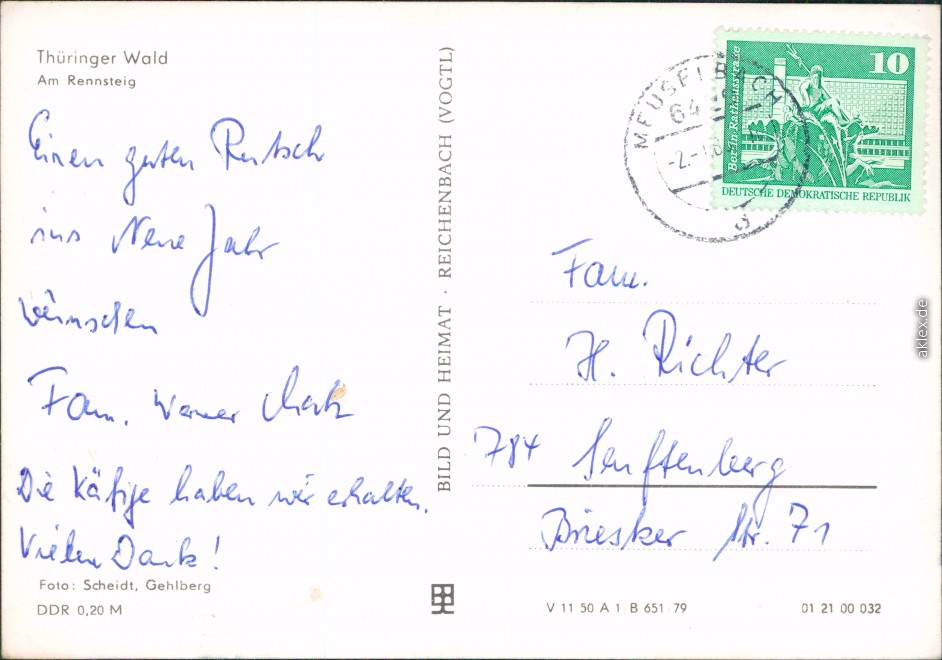 Thüringer Wald
Am Rennsteig
Einen guten Rutsch
ins Neue Jahr
wünschen
Fam. Werner
Die Käfige haben wir erhalten.
Vielen Dank!
Foto: Scheidt, Gehlberg
DDR 0,20 M
BILD UND HEIMAT · REICHENBACH (VOGTL)
MEUSELBACH
64
-2.-1.8
a
10
Berlin Rathausstraße
DEUTSCHE DEMOKRATISCHE REPUBLIK
Fam.
H. Richter
784 Senftenberg
Briesker Str. 71
V 11 50 A 1 B 651 79
01 21 00 032
aklex.de